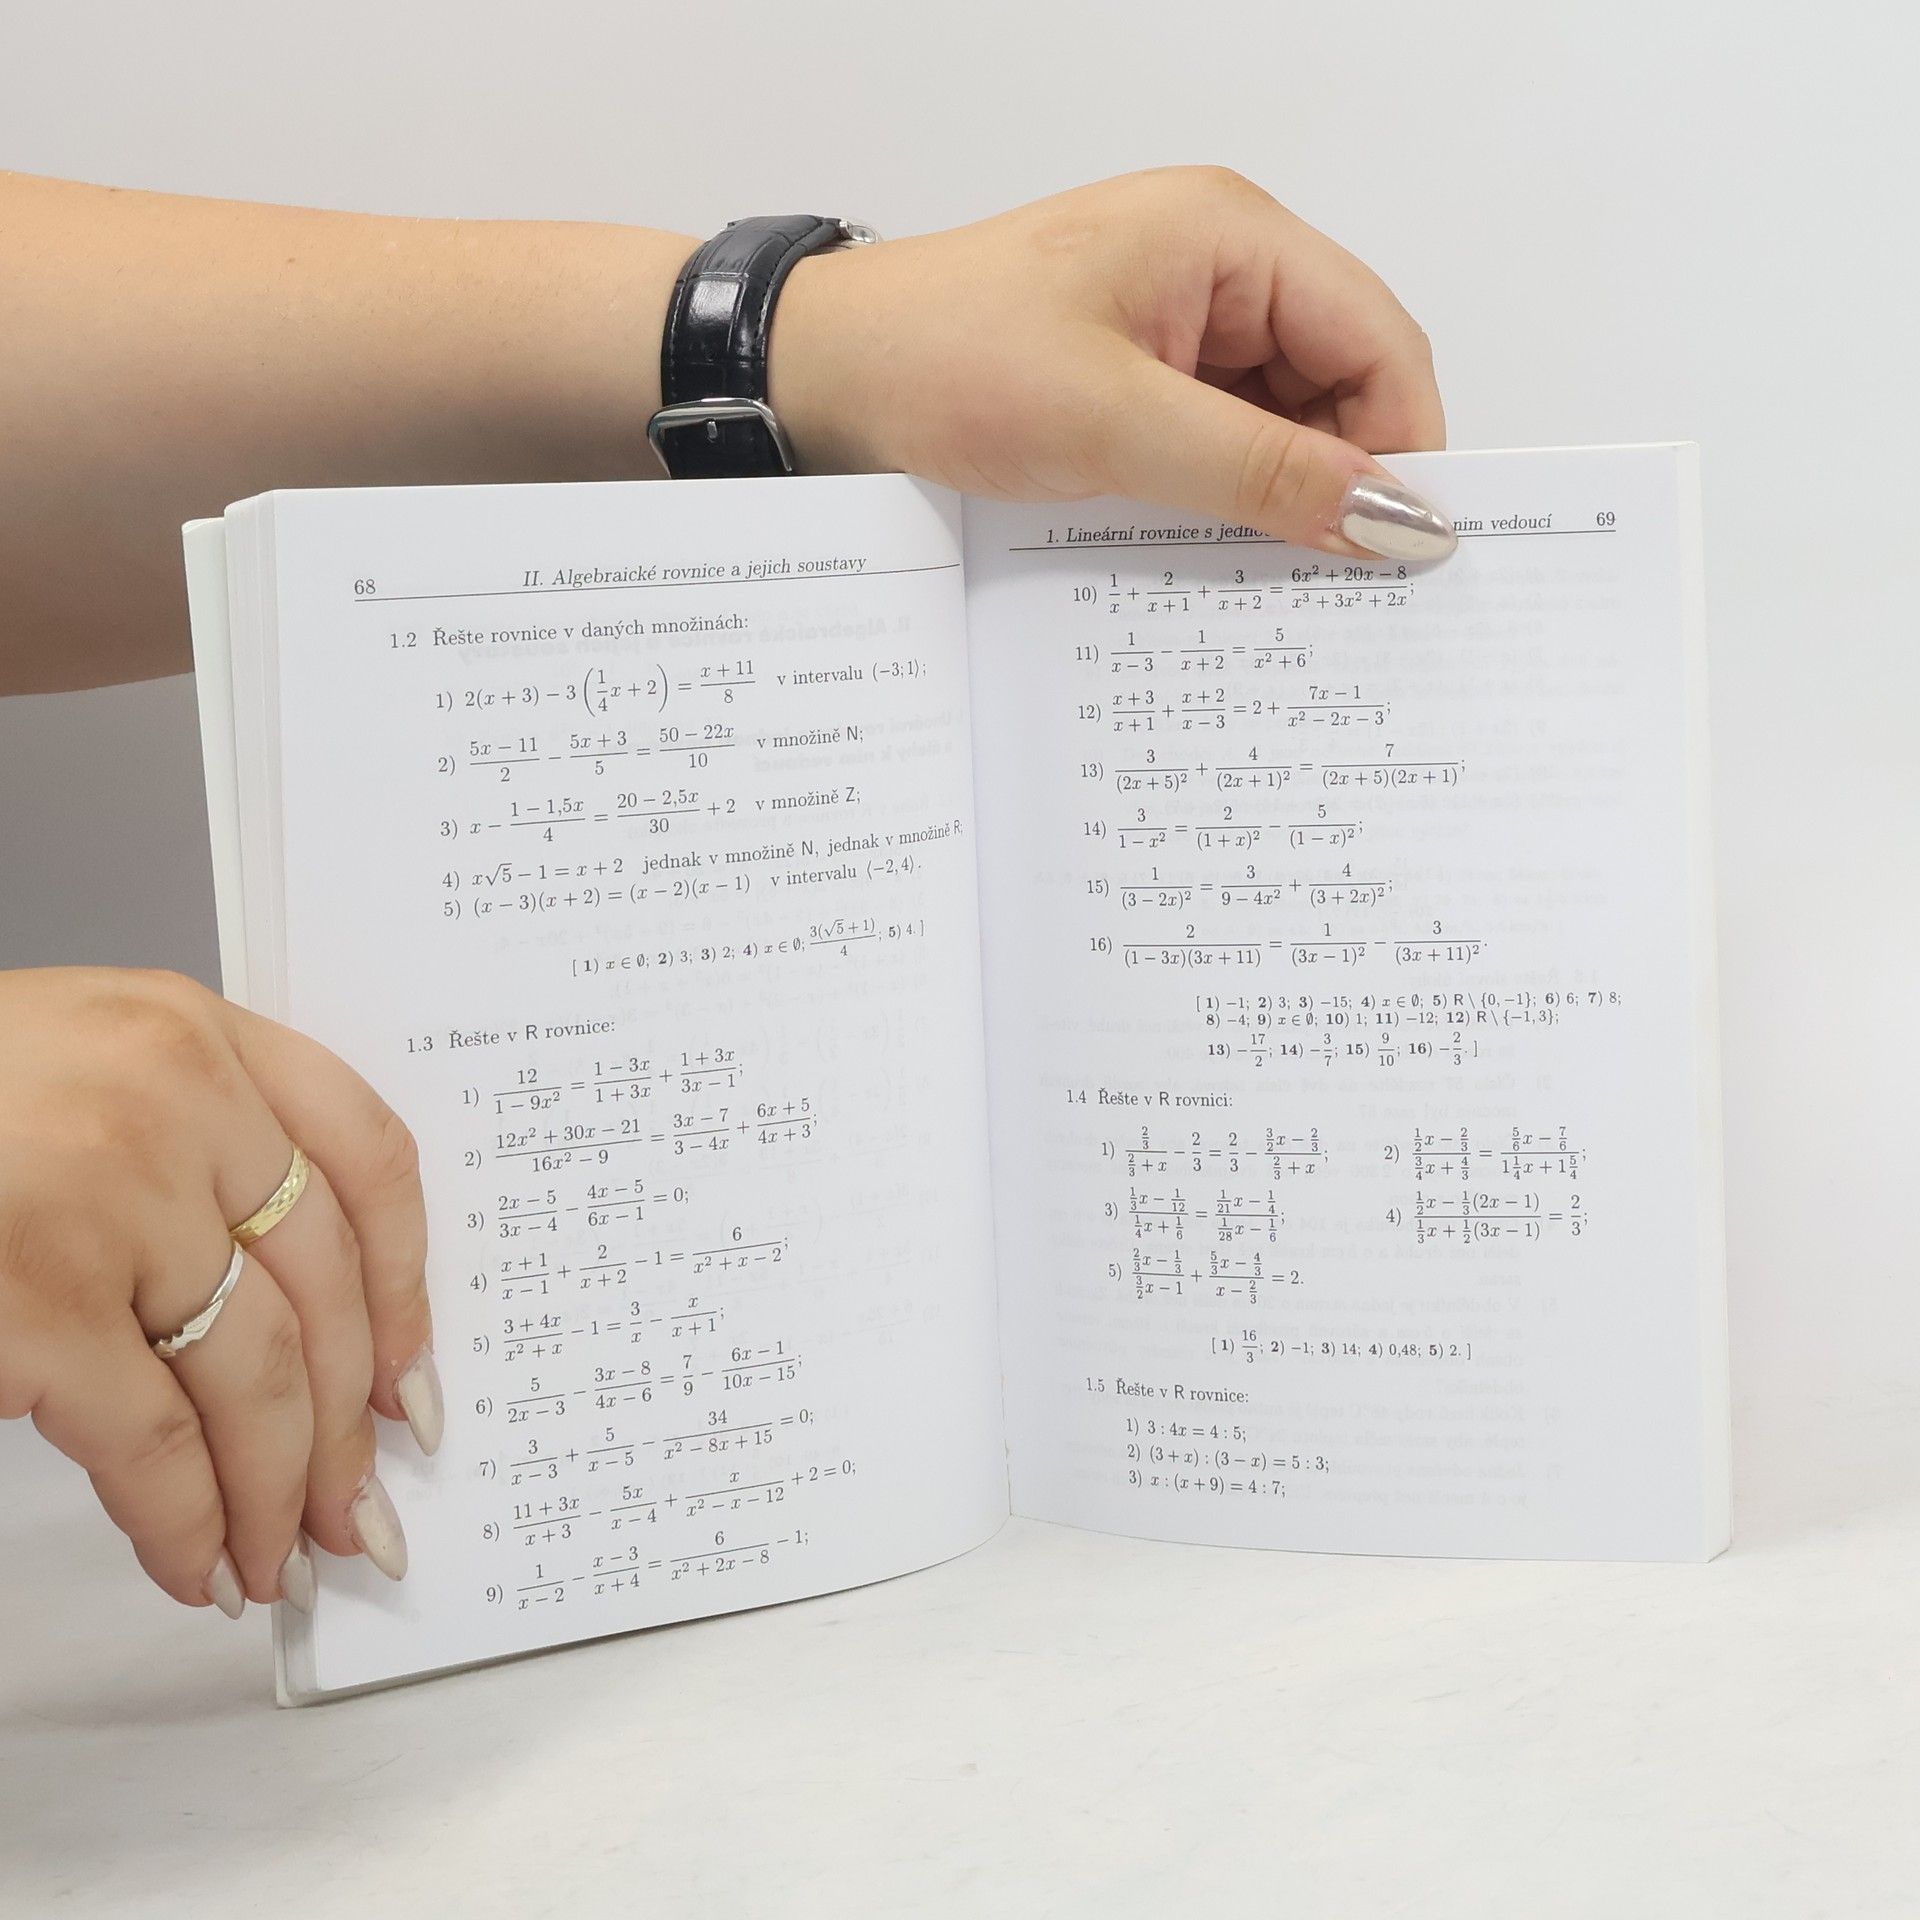 68 II. Algebraické rovnice a jejich soustavy
1.2 Řešte rovnice v daných množinách:
1) 2(x + 3) − 3 (1/4 x + 2) = (x + 11)/8 v intervalu (−3; 1⟩;
2) (5x − 11)/2 − (5x + 3)/5 = (50 − 22x)/10 v množině N;
3) x − (1 − 1,5x)/4 = (20 − 2,5x)/30 + 2 v množině Z;
4) x√5 − 1 = x + 2 jednak v množině N, jednak v množině R;
5) (x − 3)(x + 2) = (x − 2)(x − 1) v intervalu ⟨−2, 4⟩.
[ 1) x ∈ ∅; 2) 3; 3) 2; 4) x ∈ ∅; 3(√5 + 1)/4; 5) 4. ]
1.3 Řešte v R rovnice:
1) 12/(1 − 9x²) = (1 − 3x)/(1 + 3x) + (1 + 3x)/(3x − 1);
2) (12x² + 30x − 21)/(16x² − 9) = (3x − 7)/(3 − 4x) + (6x + 5)/(4x + 3);
3) (2x − 5)/(3x − 4) − (4x − 5)/(6x − 1) = 0;
4) (x + 1)/(x − 1) + 2/(x + 2) − 1 = 6/(x² + x − 2);
5) (3 + 4x)/(x² + x) − 1 = 3/x − x/(x + 1);
6) 5/(2x − 3) − (3x − 8)/(4x − 6) = 7/9 − (6x − 1)/(10x − 15);
7) 3/(x − 3) + 5/(x − 5) − 34/(x² − 8x + 15) = 0;
8) (11 + 3x)/(x + 3) − 5x/(x − 4) + x/(x² − x − 12) + 2 = 0;
9) 1/(x − 2) − (x − 3)/(x + 4) = 6/(x² + 2x − 8) − 1;
1. Lineární rovnice s nim vedoucí 69
10) 1/x + 2/(x + 1) + 3/(x + 2) = (6x² + 20x − 8)/(x³ + 3x² + 2x);
11) 1/(x − 3) − 1/(x + 2) = 5/(x² + 6);
12) (x + 3)/(x + 1) + (x + 2)/(x − 3) = 2 + (7x − 1)/(x² − 2x − 3);
13) 3/(2x + 5)² + 4/(2x + 1)² = 7/((2x + 5)(2x + 1));
14) 3/(1 − x²) = 2/(1 + x)² − 5/(1 − x)²;
15) 1/(3 − 2x)² = 3/(9 − 4x²) + 4/(3 + 2x)²;
16) 2/((1 − 3x)(3x + 11)) = 1/(3x − 1)² − 3/(3x + 11)².
[ 1) −1; 2) 3; 3) −15; 4) x ∈ ∅; 5) R \ {0, −1}; 6) 6; 7) 8;
8) −4; 9) x ∈ ∅; 10) 1; 11) −12; 12) R \ {−1, 3};
13) −17/2; 14) −3/7; 15) 9/10; 16) −2/3. ]
1.4 Řešte v R rovnici:
1) (2/3)/(2/3 + x) − 2/3 = 2/3 − (3/2 x − 2/3)/(2/3 + x); 2) (1/2 x − 2/3)/(3/4 x + 4/3) = (5/6 x − 7/6)/(1 1/4 x + 1 5/4);
3) (1/3 x − 1/12)/(1/4 x + 1/6) = (1/21 x − 1/4)/(1/28 x − 1/6); 4) (1/2 x − 1/3(2x − 1))/(1/3 x + 1/2(3x − 1)) = 2/3;
5) (2/3 x − 1/3)/(3/2 x − 1) + (5/3 x − 4/3)/(x − 2/3) = 2.
[ 1) 16/3; 2) −1; 3) 14; 4) 0,48; 5) 2. ]
1.5 Řešte v R rovnice:
1) 3 : 4x = 4 : 5;
2) (3 + x) : (3 − x) = 5 : 3;
3) x : (x + 9) = 4 : 7;